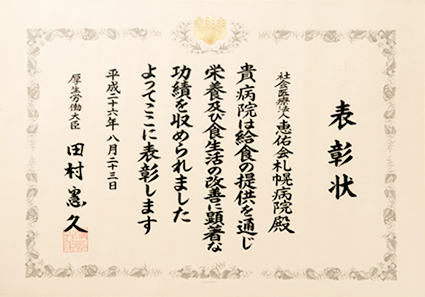 表彰状
社会医療法人恵佑会札幌病院殿
貴病院は給食の提供を通じ
栄養及び食生活の改善に顕著な
功績を収められました
よってここに表彰します
平成二十六年八月二十三日
厚生労働大臣 田村憲久